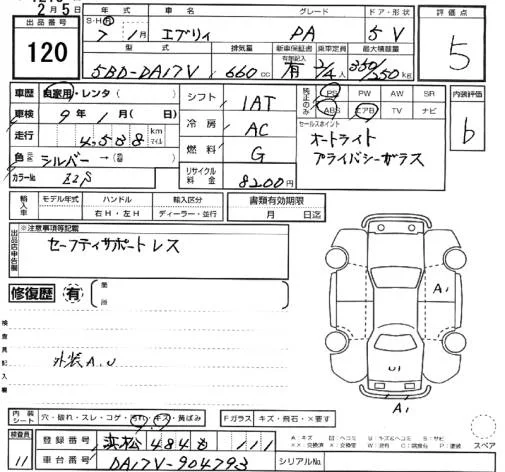 2月5日
出品番号
120
年式 車名 グレード ドア・形状
S・H・R
7 1月 エブリィ PA 5V
型式 排気量 新車保証書 乗車定員 最大積載量
有無記入
5BD-DA17V 660cc 有 2/4人 350/250kg
評価点
5
車歴 自家用・レンタ( )
車検 9年1月( 日)
走行 4,588 km マイル
色 シルバー→( )
カラーNo. Z2S
シフト 1AT
冷房 AC
燃料 G
リサイクル料金 8200円
純正のみ PS PW AW SR
ABS エアB TV ナビ
セールスポイント
オートライト
プライバシーガラス
内装評価
b
輸入車 モデル年式 ハンドル 輸入区分
右H・左H ディーラー・並行
書類有効期限
月 日迄
出品店申告欄
※注意事項等記載
セーフティサポートレス
修復歴 有 箇所
検査員記入欄
外装A.U
A1
U1
A1
内装シート 穴・破れ・スレ・コゲ・汚れ・キズ・黄ばみ
Fガラス キズ・飛石・×要す
検査員
11
登録番号 浜松 484 も 111
車台番号 DA17V-904793
シリアルNo.
スペア